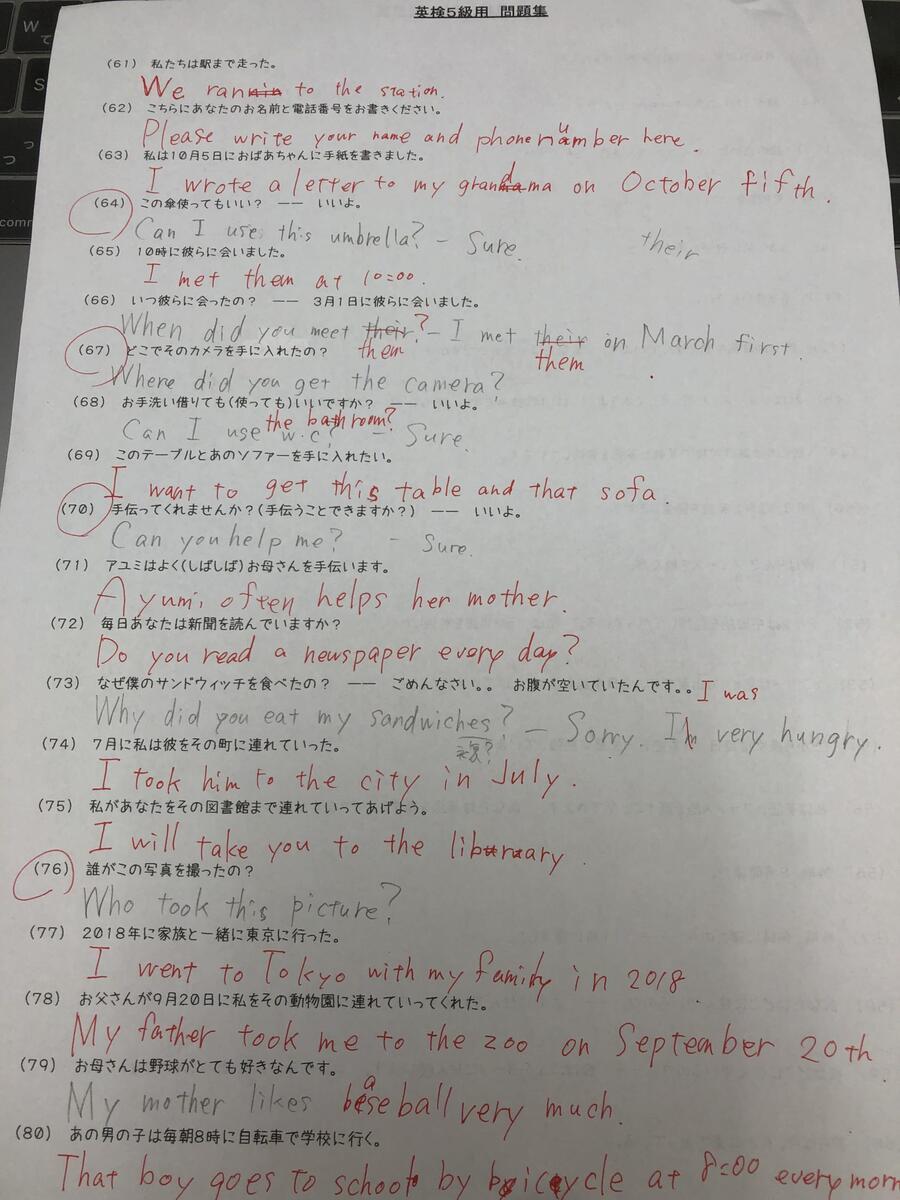 英検5級用 問題集
(61) 私たちは駅まで走った。
We ran to the station.
(62) こちらにあなたのお名前と電話番号をお書きください。
Please write your name and phone number here.
(63) 私は10月5日におばあちゃんに手紙を書きました。
I wrote a letter to my grandma on October fifth.
(64) この傘使ってもいい? —— いいよ。
Can I use this umbrella? – Sure. their
(65) 10時に彼らに会いました。
I met them at 10:00.
(66) いつ彼らに会ったの? —— 3月1日に彼らに会いました。
When did you meet their? – I met their on March first.
them them
(67) どこでそのカメラを手に入れたの?
Where did you get the camera?
(68) お手洗い借りても(使っても)いいですか? —— いいよ。
the bathroom?
Can I use w.c? – Sure
(69) このテーブルとあのソファーを手に入れたい。
I want to get this table and that sofa.
(70) 手伝ってくれませんか?(手伝うことできますか?) —— いいよ。
Can you help me? – Sure.
(71) アユミはよく(しばしば)お母さんを手伝います。
Ayumi often helps her mother.
(72) 毎日あなたは新聞を読んでいますか?
Do you read a newspaper every day?
(73) なぜ僕のサンドウィッチを食べたの? —— ごめんなさい。。 お腹が空いていたんです。。
I was
Why did you eat my sandwiches? – Sorry. I'm very hungry.
複?
(74) 7月に私は彼をその町に連れていった。
I took him to the city in July.
(75) 私があなたをその図書館まで連れていってあげよう。
I will take you to the library.
(76) 誰がこの写真を撮ったの?
Who took this picture?
(77) 2018年に家族と一緒に東京に行った。
I went to Tokyo with my family in 2018
(78) お父さんが9月20日に私をその動物園に連れていってくれた。
My father took me to the zoo on September 20th
(79) お母さんは野球がとても好きなんです。
My mother likes baseball very much.
(80) あの男の子は毎朝8時に自転車で学校に行く。
That boy goes to school by bicycle at 8:00 every morn